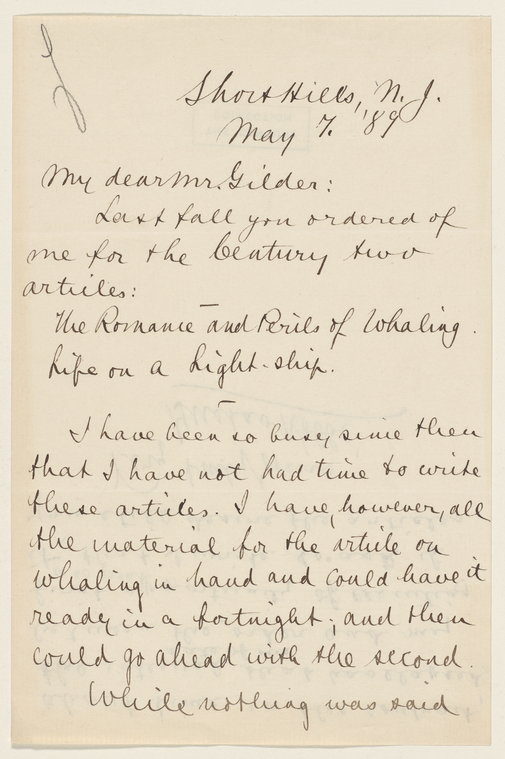 Short Hills, N. J.
May 7. '89
My dear Mr. Gilder:
Last fall you ordered of
me for the Century two
articles:
The Romance and Perils of Whaling.
Life on a Light-ship.
I have been so busy since then
that I have not had time to write
these articles. I have, however, all
the material for the article on
whaling in hand and could have it
ready in a fortnight; and then
could go ahead with the second.
While nothing was said